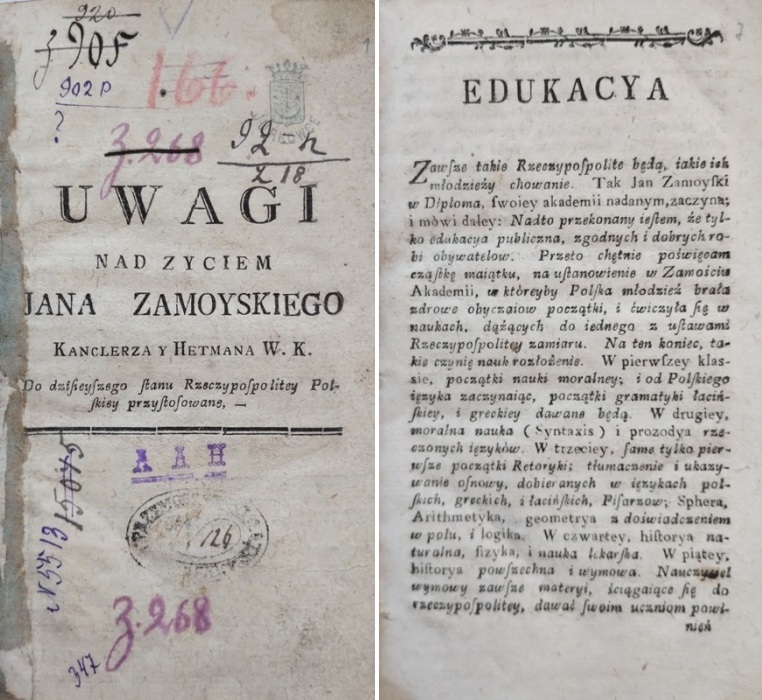 920
z 905
902 p
?
166.
z. 268
92-h
Z 18
UWAGI
NAD ZYCIEM
JANA ZAMOYSKIEGO
KANCLERZA Y HETMANA W. K.
Do dziſieyſzego ſtanu Rzeczypoſpolitey Pol-
ſkiey przyſtoſowane, —
A A H
15075
N 5513
126
z. 268
347
1
7
EDUKACYA
Zawſze takie Rzeczypoſpolite będą, iakie ich
młodzieży chowanie. Tak Jan Zamoyſki
w Diploma, ſwoiey akademii nadanym, zaczyna;
i mówi daley: Nadto przekonany ieſtem, że tyl-
ko edukacya publiczna, zgodnych i dobrych ro-
bi obywatelow. Przeto chętnie poświęcam
cząſtkę maiątku, na uſtanowienie w Zamościu
Akademii, w któreyby Polſka młodzież brała
zdrowe obyczaiow początki, i ćwiczyła ſię w
naukach, dążących do iednego z uſtawami
Rzeczypoſpolitey zamiaru. Na ten koniec, ta-
kie czynię nauk rozłożenie. W pierwſzey klas-
sie, początki nauki moralney; i od Polſkiego
ięzyka zaczynaiąc, początki gramatyki łaciń-
ſkiey, i greckiey dawane będą. W drugiey,
moralna nauka (Syntaxis) i prozodya rze-
czonych ięzyków. W trzeciey, ſame tylko pier-
wſze początki Retoryki; tłumaczenie i ukazy-
wanie oſnowy, dobieranych w ięzykach pol-
ſkich, greckich, i łacińſkich, Piſarzow; Sphera,
Arithmetyka, geometrya z doświadczeniem
w polu, i logika. W czwartey, hiſtorya na-
turalna, fizyka, i nauka lekarſka. W piątey,
hiſtorya powſzechna i wymowa. Nauczyciel
wymowy zawſze materyi, ściągaiące ſię do
rzeczypoſpolitey, dawać ſwoim uczniom powi-
nien